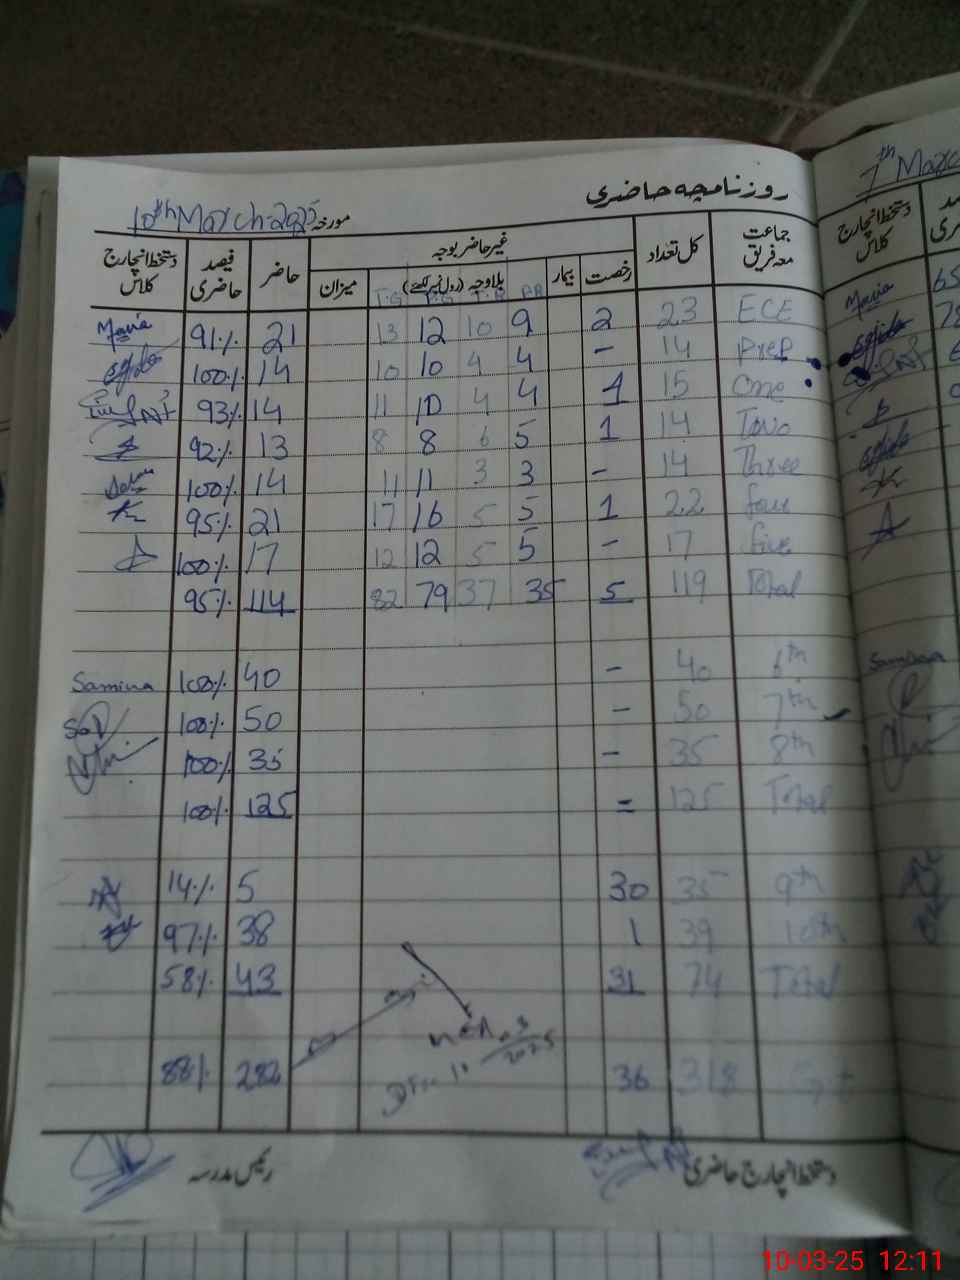 روزنامچہ حاضری
مورخہ 10th March-2025
جماعت معہ فریق کل تعداد غیر حاضر بوجہ حاضر فیصد حاضری دستخط انچارج کلاس
رخصت بیمار بلاوجہ (رول نمبر لکھئے) میزان
ECE 23 2 9 10 12 13 21 91% Maria
Prep 14 – 4 4 10 10 14 100%
One 15 1 4 4 10 11 14 93%
Two 14 1 5 6 8 8 13 92%
Three 14 – 3 3 11 11 14 100%
four 22 1 5 5 16 17 21 95%
five 17 – 5 5 12 12 17 100%
Total 119 5 35 37 79 82 114 95%
6th 40 – 40 100% Samina
7th 50 – 50 100%
8th 35 – 35 100%
Total 125 = 125 100%
9th 35 30 5 14%
10th 39 1 38 97%
Total 74 31 43 58%
318 36 282 88%
دستخط انچارج حاضری رئیس مدرسہ
7th March
دستخط انچارج کلاس
Maria
Samina
10-03-25 12:11